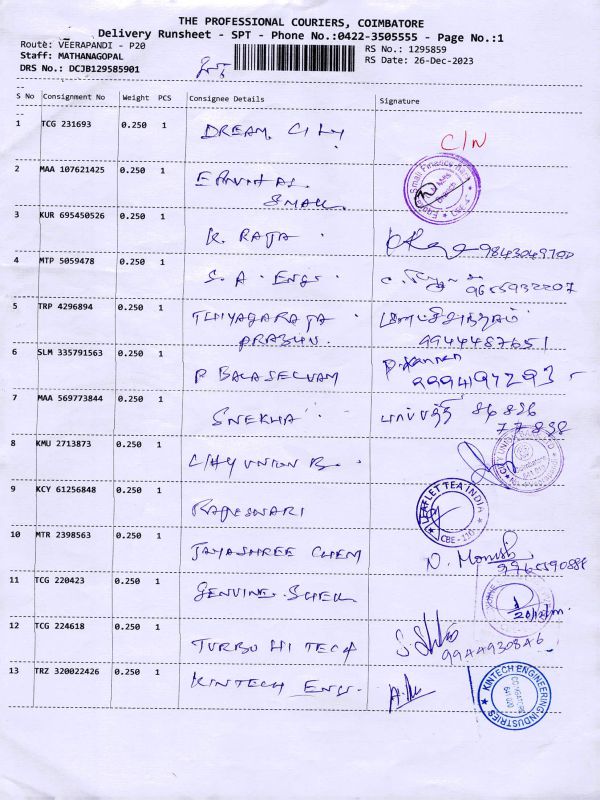 THE PROFESSIONAL COURIERS, COIMBATORE
Delivery Runsheet - SPT - Phone No.:0422-3505555 - Page No.:1
Route: VEERAPANDI - P20
RS No.: 1295859
Staff: MATHANAGOPAL
RS Date: 26-Dec-2023
DRS No.: DCJB129585901
S No Consignment No Weight PCS Consignee Details Signature
1 TCG 231693 0.250 1 DREAM CITY C/N
2 MAA 107621425 0.250 1
SMALL
3 KUR 695450526 0.250 1 K. RAJA 9843049700
4 MTP 5059478 0.250 1 S. A. ENGS
5 TRP 4296894 0.250 1 THIYAGARAJA மீனாட்சிசுந்தரம்
PRABHU 9944487651
6 SLM 335791563 0.250 1 P BALASELVAM P. Kannan
9994197293
7 MAA 569773844 0.250 1 SNEKHA 86836
77838
8 KMU 2713873 0.250 1 CITY UNION B.
9 KCY 61256848 0.250 1 RAJESWARI LEAFLET TEA INDIA
CBE - 110
10 MTR 2398563 0.250 1 JAYASHREE CHEM N. Monish
11 TCG 220423 0.250 1 GENUINE
12 TCG 224618 0.250 1 TURBO HI TECH
9944930846
13 TRZ 320022426 0.250 1 KINTECH ENGS. KINTECH ENGINEERING INDUSTRIES